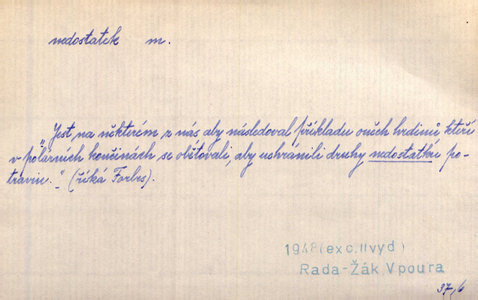 nedostatek m.
„Jest, na některém z nás aby následoval příkladu oněch hrdinů kteří
v polárních končinách se obětovali, aby uchránili druhy nedostatku po-
travin." (říká Forbes).
1948 (exc. II vyd)
Rada-Žák Vpoura
37/6